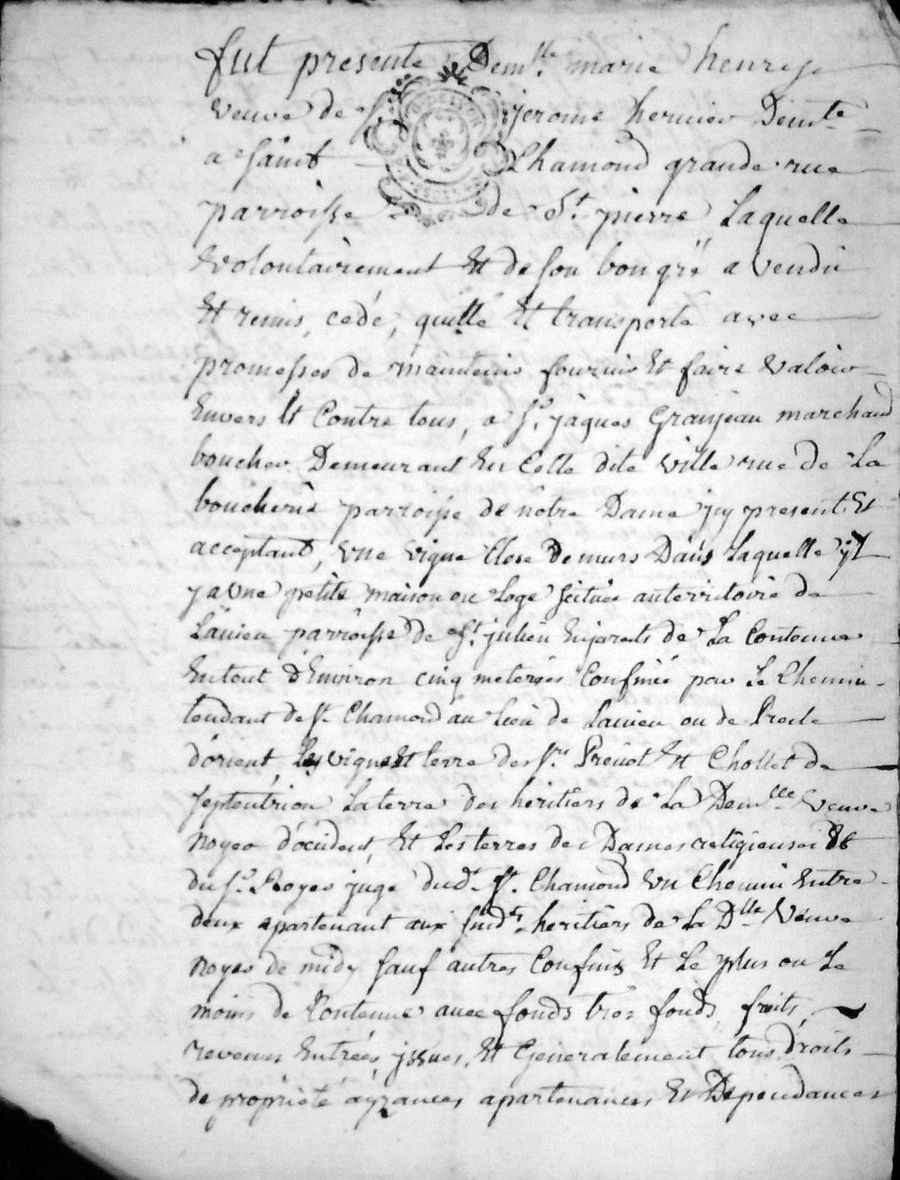 fut presente Dem.lle marie henrys
veuve de S.r jerome hervier Demte
a saint Chamond grande rue
parroisse de St. pierre Laquelle
volontairement Et de son bon gré a vendu
Et remis, cedé, quitté Et transporté avec
promesses de maintenir fournir Et faire valoir
Envers Et Contre tous, a Sr. jaques Granjean marchand
boucher Demeurant En Cette dite ville rue de La
boucherie parroisse de nôtre Dame jcy present Et
acceptant, vne vigne Close de murs Dans Laquelle jl
y a vne petite maison ou Loge scituée au territoire de
Lavieu parroisse de St. julien En jarets de La Contenue
En tout d'Environ cinq meterées Confinée par Le Chemin
tendant de St. Chamond au Lieu de Lavieu ou de
d'orient, Les vignes Et terre des Srs. Prevot Et Chollet de
septentrion La terre des heritiers de La Demlle veuve
noyer d'occident, Et Les terres des Dames religieuses &
du Sr. Royer juge dud. St. Chamond vn Chemin Entre
deux apartenant aux susds. heritiers de La Dlle veuve
noyer de midy sauf autres Confins Et Le plus ou Le
moins de Contenue avec fonds trés fonds, fruits,
revenus Entrées, jssues, Et Generalement tous droits
de proprieté ayzances apartenances Et Dependances